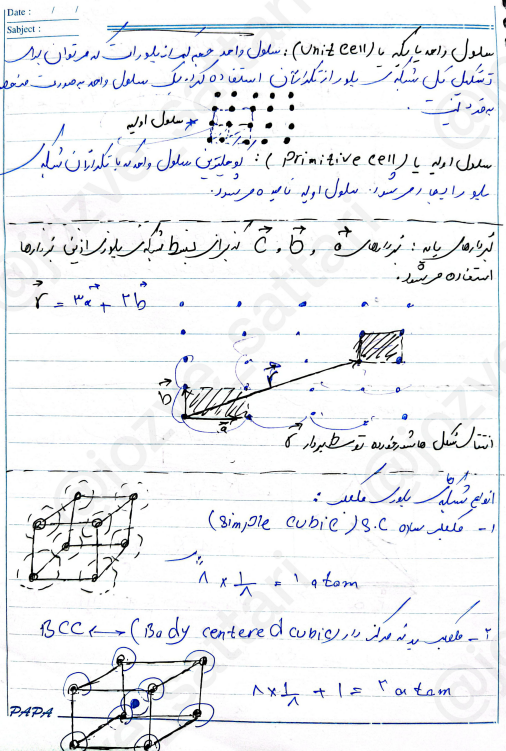 Date : / /
Sabject :
سلول واحد یا یکه یا (Unit cell) : سلول واحد جعبه ای از بلور است که می توان برای
تشکیل کل شبکه ی بلور از تکرارشان استفاده کرد. یک سلول واحد به صورت منحصر
به فرد نیست.
سلول اولیه
سلول اولیه یا (Primitive cell) : کوچکترین سلول واحد که با تکرارشان شبکه ی
بلور را ایجاد می شود. سلول اولیه نامیده می شود.
بردارهای پایه : بردارهای a و b و c که برای بسط شبکه ی بلوری از این بردارها
استفاده می شود.
r = ۳a + ۲b
r
b
a
انتقال شکل هاشور خورده توسط بردار r
انواع شبکه های بلوری مکعبی :
۱- مکعبی ساده S.C (Simple cubic)
۸ × ۱/۸ = ۱ atom
۲- مکعبی بدنه مرکز دار (Body centered cubic) ↔ BCC
۸×۱/۸ + ۱ = ۲ atom
PAPA